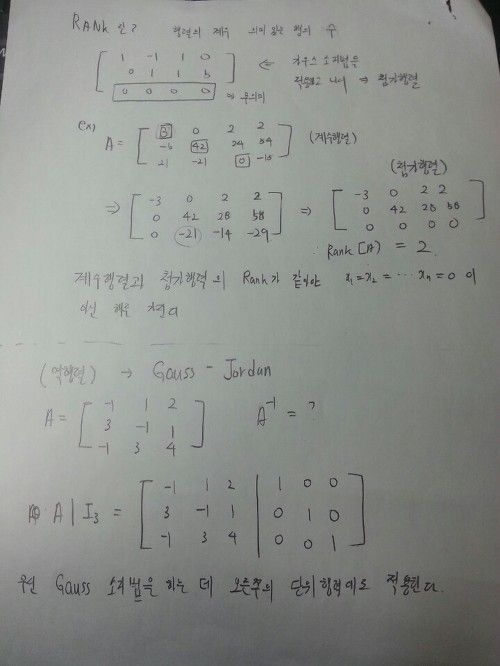 RANK 란? 행렬의 계수 의미 있는 행의 수
1 -1 1 0
0 1 1 5 ⇐ 가우스 소거법을
0 0 0 0 적용하고 나서 ⇒ 첨가행렬
→ 무의미
ex)
A = 3 0 2 2 (계수행렬)
-6 42 24 54
21 -21 0 -15
(첨가행렬)
⇒ -3 0 2 2 ⇒ -3 0 2 2
0 42 28 58 0 42 28 58
0 -21 -14 -29 0 0 0 0
∴ Rank(A) = 2
계수행렬과 첨가행렬의 Rank가 같아야 x₁=x₂= ⋯ xₙ=0 이
아닌 해를
(역행렬) → Gauss - Jordan
A = -1 1 2 A⁻¹ = ?
3 -1 1
-1 3 4
A | I₃ = -1 1 2 | 1 0 0
3 -1 1 | 0 1 0
-1 3 4 | 0 0 1
우선 Gauss 소거법을 하는 데 오른쪽의 단위행렬에도 적용한다.